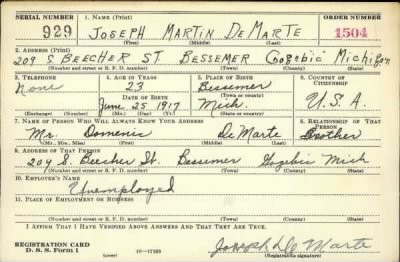 SERIAL NUMBER 1. NAME (Print) ORDER NUMBER
929 JOSEPH MARTIN DEMARTE 1504
(First) (Middle) (Last)
2. ADDRESS (Print)
209 S. BEECHER ST. BESSEMER Gogebic Michigan
(Number and street or R. F. D. number) (Town) (County) (State)
3. TELEPHONE 4. AGE IN YEARS 5. PLACE OF BIRTH 6. COUNTRY OF CITIZENSHIP
None 23 Bessemer
DATE OF BIRTH (Town or county)
June 25 1917 Mich. U.S.A.
(Exchange) (Number) (Mo.) (Day) (Yr.) (State or country)
7. NAME OF PERSON WHO WILL ALWAYS KNOW YOUR ADDRESS 8. RELATIONSHIP OF THAT PERSON
Mr. Domenic DeMarte Brother
(Mr., Mrs., Miss) (First) (Middle) (Last)
9. ADDRESS OF THAT PERSON
209 S. Beecher St. Bessemer Gogebic Mich
(Number and street or R. F. D. number) (Town) (County) (State)
10. EMPLOYER'S NAME
Unemployed
11. PLACE OF EMPLOYMENT OR BUSINESS
(Number and street or R. F. D. number) (Town) (County) (State)
I AFFIRM THAT I HAVE VERIFIED ABOVE ANSWERS AND THAT THEY ARE TRUE.
REGISTRATION CARD
D. S. S. Form 1 (over) Joseph De Marte
(Registrant's signature)